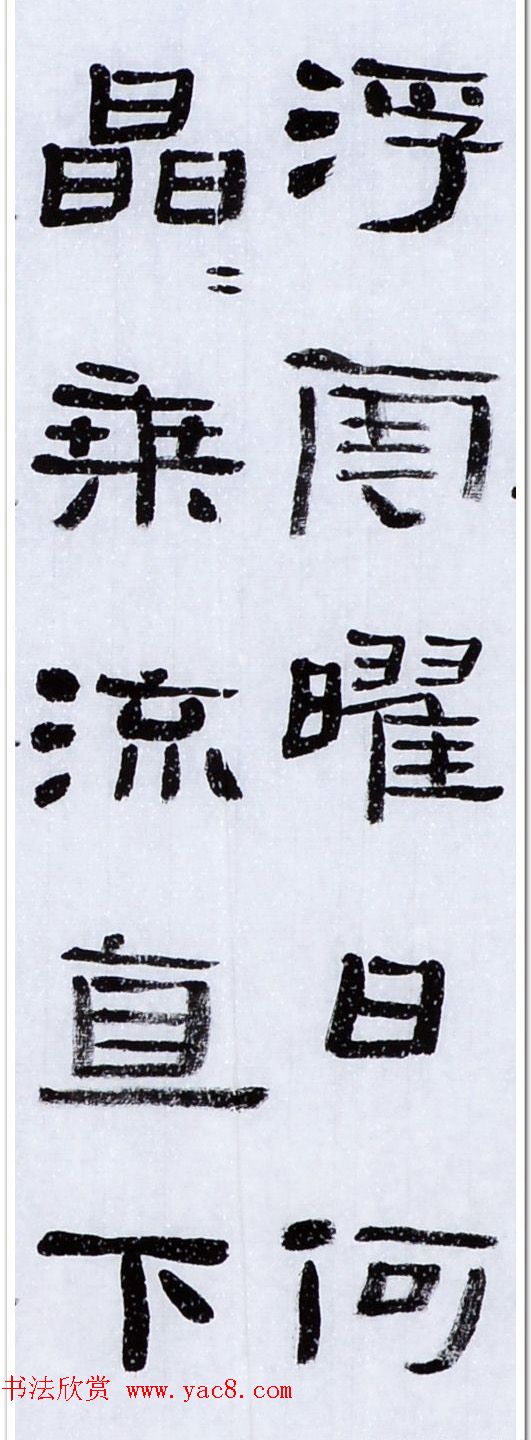 浮曜日何
晶〻乘流直下
书法欣赏 www.yac8.com